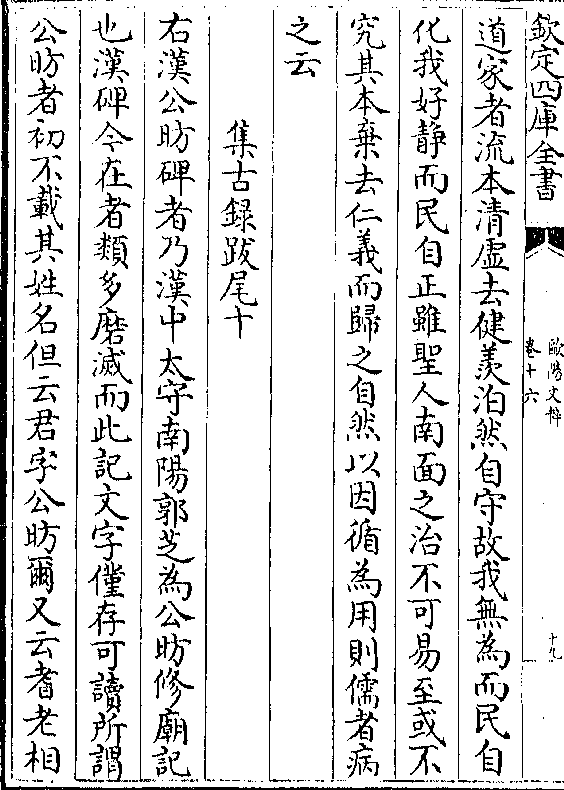 欽定四庫全書
歐陽文粹
卷十六
十九
道家者流本清虛去健羨泊然自守故我無為而民自
化我好靜而民自正雖聖人南面之治不可易至或不
究其本棄去仁義而歸之自然以因循為用則儒者病
之云
集古錄跋尾十
右漢公昉碑者乃漢中太守南陽郭芝為公昉修廟記
也漢碑今在者類多磨滅而此記文字僅存可讀所謂
公昉者初不載其姓名但云君字公昉爾又云耆老相